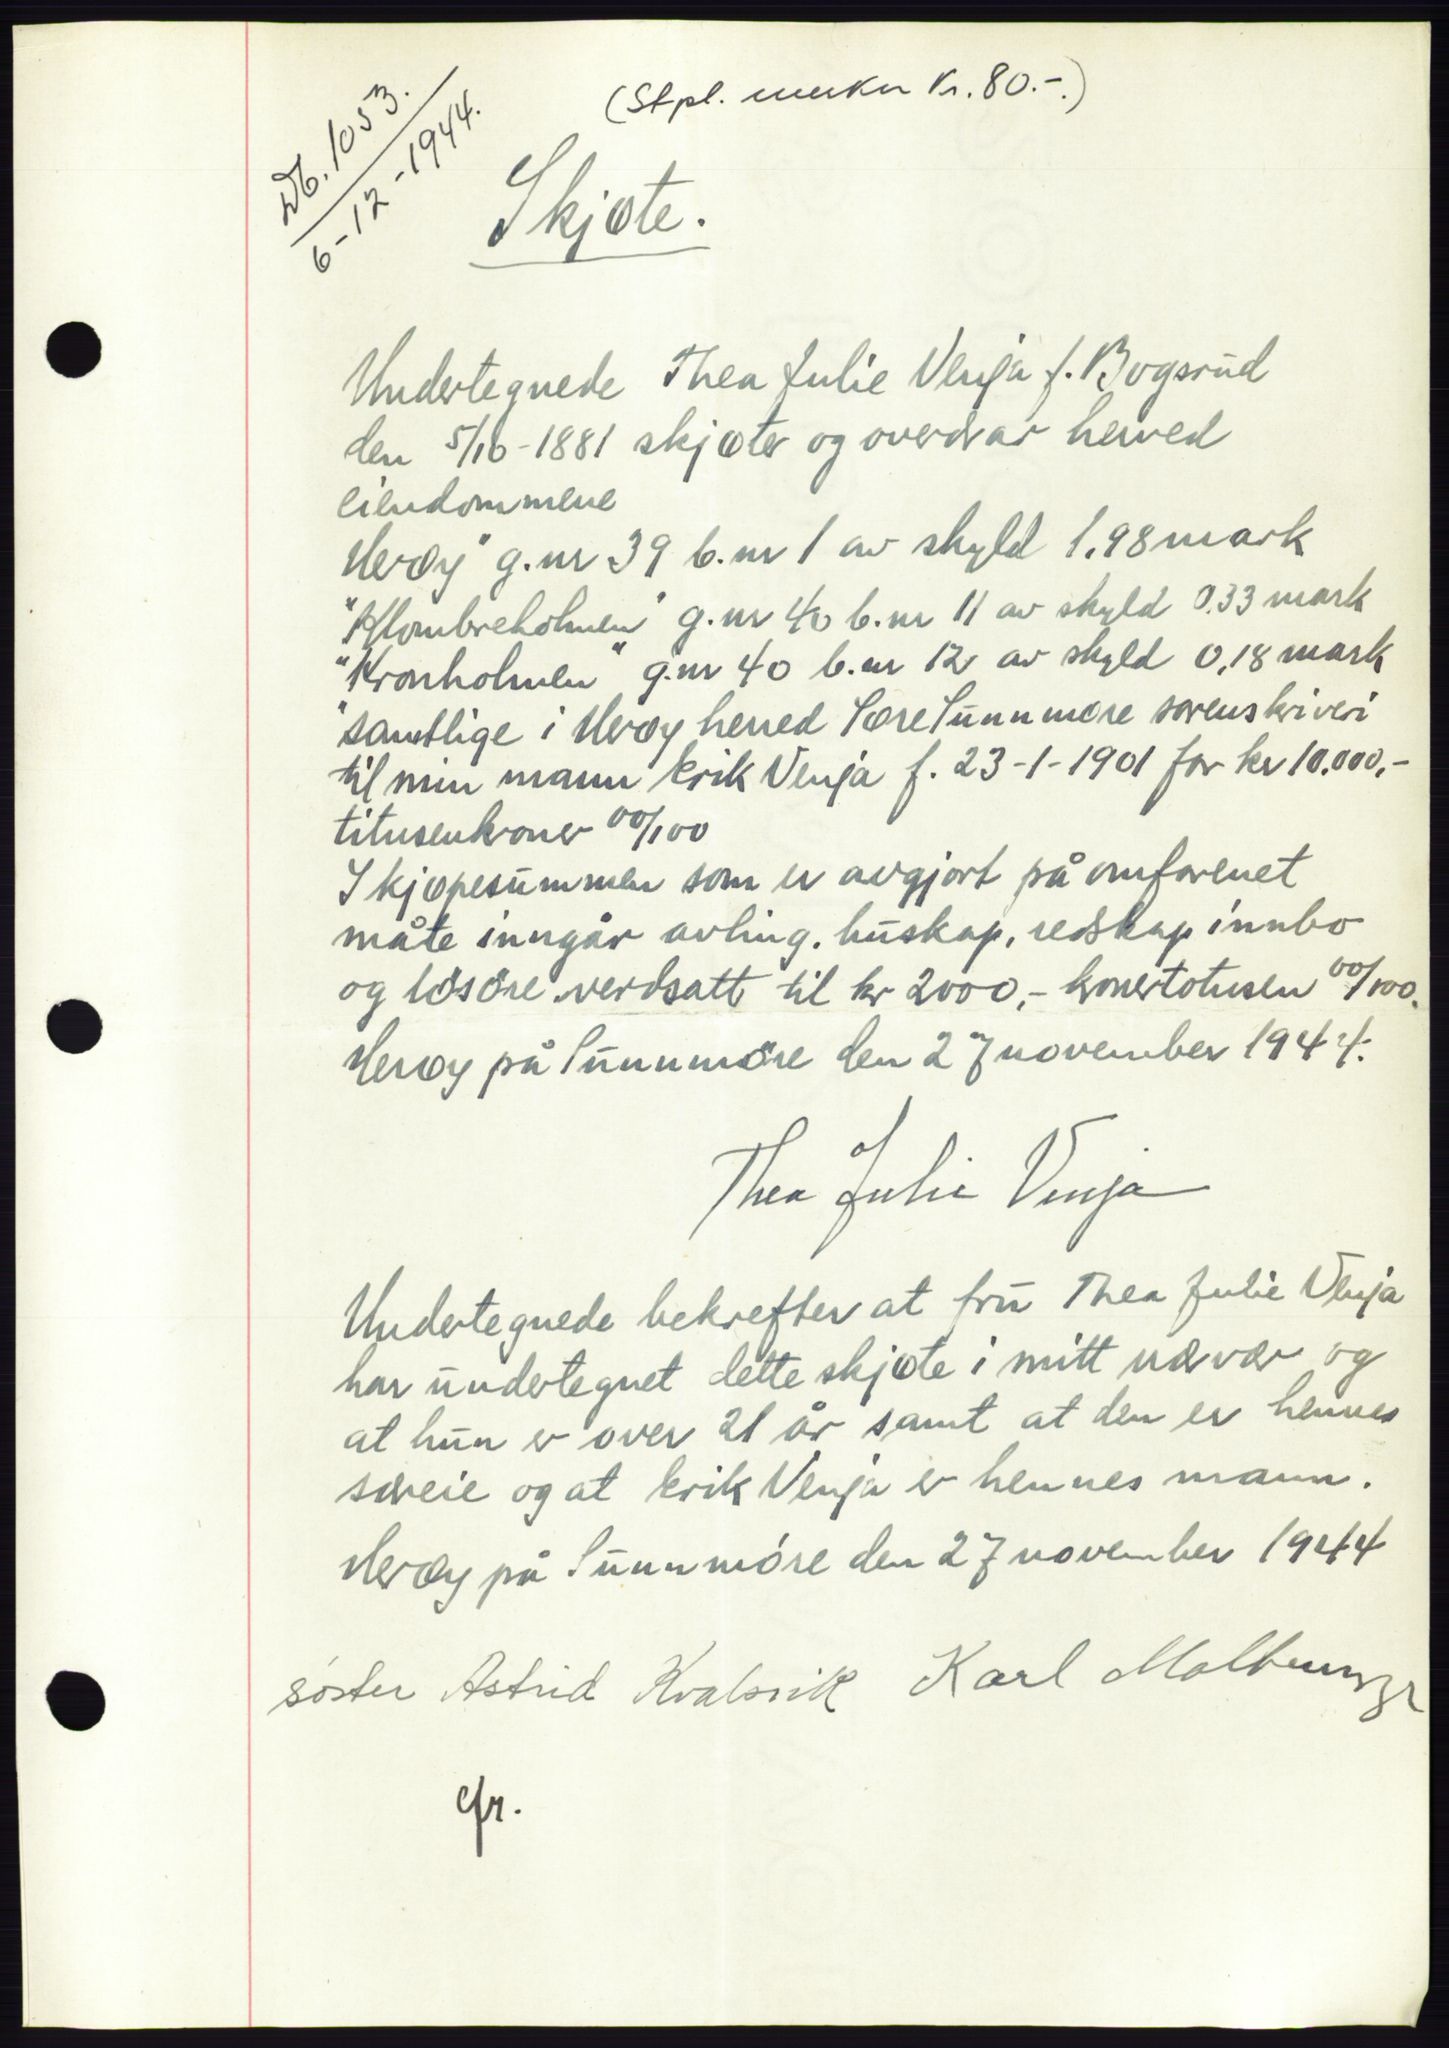 (Stpl. merker Kr. 80.-.)
Db. 1053.
6-12-1944.
Skjøte.
Undertegnede Thea Julie Venja f. Bogsrud
den 5/10-1881 skjøter og overdrar herved
eiendommene
Herøy" g.nr 39 b.nr 1 av skyld 1,98 mark
"Klombreholmen" g.nr 40 b.nr 11 av skyld 0.33 mark
"Kronholmen" g.nr 40 b.nr 12 av skyld 0,18 mark
"samtlige i Herøy herred Søre Sunnmøre sorenskriveri
til min mann Erik Venja f. 23-1-1901 for kr 10.000,-
titusenkroner 00/100
I kjøpesummen som er avgjort på omforenet
måte inngår avling. huskap, redskap innbo
og lösöre verdsatt til kr 2000,- kronertotusen 00/100.
Herøy på Sunnmöre den 27 november 1944.
Thea Julie Venja
Undertegnede bekrefter at fru Thea Julie Venja
har undertegnet dette skjøte i mitt nærvær og
at hun er over 21 år samt at den er hennes
særeie og at Erik Venja er hennes mann.
Herøy på Sunnmóre den 27 november 1944
söster Astrid Kvalsvik Karl